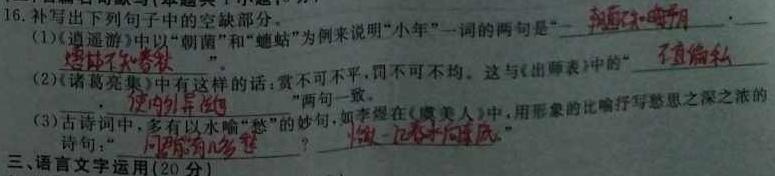 16.补写出下列句子中的空缺部分。
(1)《逍遥游》中以“朝菌”和“蟪蛄”为例来说明“小年”一词的两句是“朝菌不知晦朔,
蟪蛄不知春秋”。
(2)《诸葛亮集》中有这样的话:赏不可不平,罚不可不均。这与《出师表》中的“不宜偏私
,使内外异法也”两句一致。
(3)古诗词中,多有以水喻“愁”的妙句,如李煜在《虞美人》中,用形象的比喻抒写愁思之深之浓的
诗句:“问君能有几多愁?恰似一江春水向东流。”
三、语言文字运用(20分)